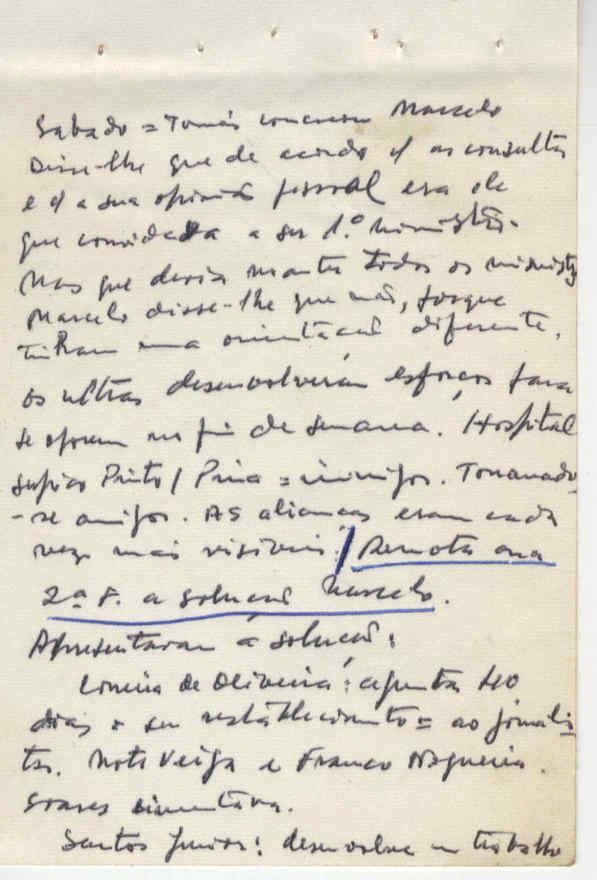 Sabado = Tomás convocou Marcelo
Disse-lhe que de acordo c/ as consultas
e c/ a sua opinião pessoal era ele
que convidada a ser 1.º ministro.
Mas que devia manter todos os ministros
Marcelo disse-lhe que não, porque
tinham uma orientação diferente.
os ultras desenvolveram esforços para
se oporem no fim de semana. Hospital
Supico Pinto / Pina = inimigos. Tornando-
-se amigos. As alianças eram cada
vez mais visíveis. / Remota era
2ª F. a solução Marcelo.
Apresentaram a solução:
Correia de Oliveira: aguentar
dias o seu restabelecimento = ao jornalis-
tas. Mota Veiga e Franco Nogueira.
Soares
Santos Junior: desenvolve um trabalho